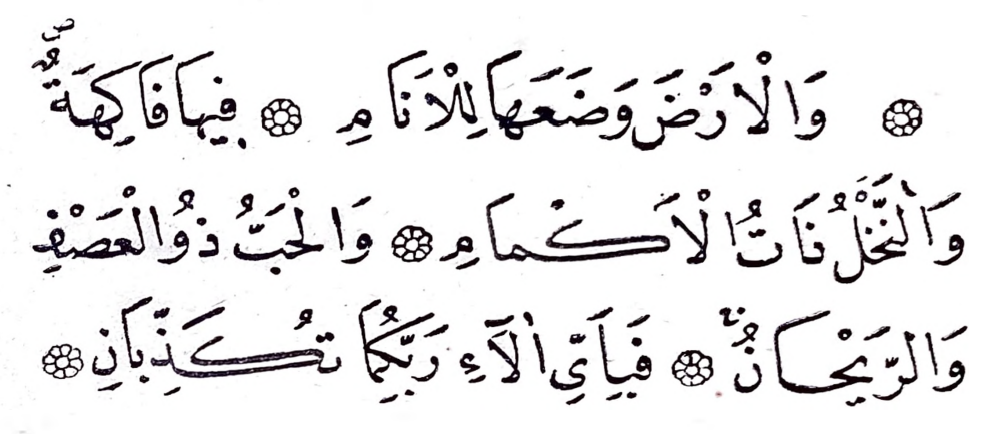 ۞ وَالْاَرْضَ وَضَعَهَا لِلْاَنَامِ ۞ فِيهَا فَاكِهَةٌ ۖ
وَالنَّخْلُ ذَاتُ الْاَكْمَامِ ۞ وَالْحَبُّ ذُو الْعَصْفِ
وَالرَّيْحَانُ ۚ ۞ فَبِاَيِّ اٰلَاءِ رَبِّكُمَا تُكَذِّبَانِ ۞